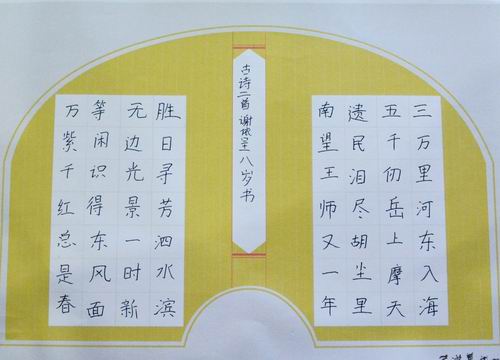 三万里河东入海
五千仞岳上摩天
遗民泪尽胡尘里
南望王师又一年
古诗二首 谢 八岁书
胜日寻芳泗水滨
无边光景一时新
等闲识得东风面
万紫千红总是春